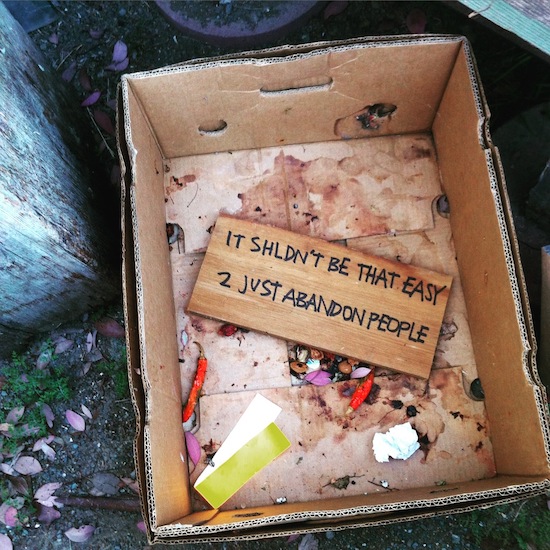 IT SHLDN'T BE THAT EASY
2 JUST ABANDON PEOPLE